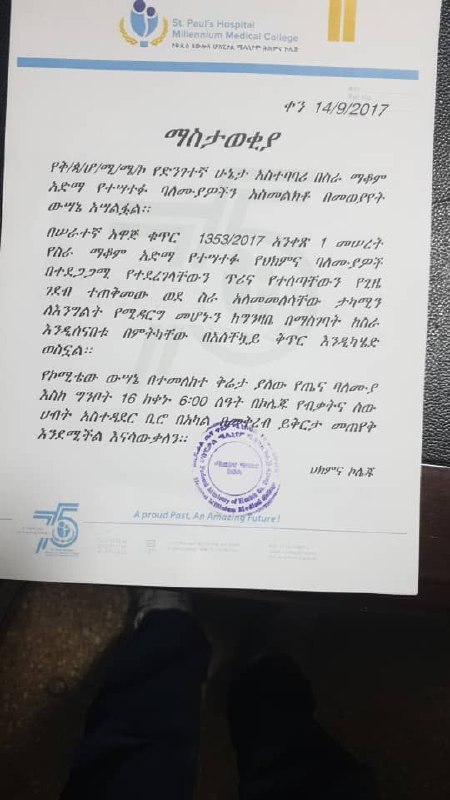 St. Paul's Hospital
Millennium Medical College
የቅዱስ ጳውሎስ ሆስፒታል ሚሌኒየም ሕክምና ኮሌጅ
ቀን 14/9/2017
ማስታወቂያ
የቅ/ጳ/ሆ/ሚ/ሜ/ኮ የድንገተኛ ሁኔታ አስተባባሪ በስራ ማቆም
አድማ የተሣተፉ ባለሙያዎችን አስመልክቶ በመወያየት
ውሣኔ አሣልፏል፡፡
በሠራተኛ አዋጅ ቁጥር 1353/2017 አንቀጽ 1 መሠረት
የስራ ማቆም አድማ የተሣተፉ የህክምና ባለሙያዎች
በተደጋጋሚ የተደረገላቸውን ጥሪና የተሰጣቸውን የጊዜ
ገደብ ተጠቅመው ወደ ስራ አለመመለሳቸው ታካሚን
ለእንግልት የሚዳርግ መሆኑን ከግንዛቤ በማስገባት ከስራ
እንዲሰናበቱ በምትካቸው በአስቸኳይ ቅጥር እንዲካሄድ
ወስኗል፡፡
የኮሚቴው ውሣኔ በተመለከተ ቅሬታ ያለው የጤና ባለሙያ
እስከ ግንቦት 16 ከቀኑ 6:00 ሰዓት በኮሌጁ የብቃትና ሰው
ሀብት አስተዳደር ቢሮ በአካል በመቅረብ ይቅርታ መጠየቅ
እንደሚችል እናሳውቃለን፡፡
ህክምና ኮሌጁ
75
A proud Past, An Amazing Future!